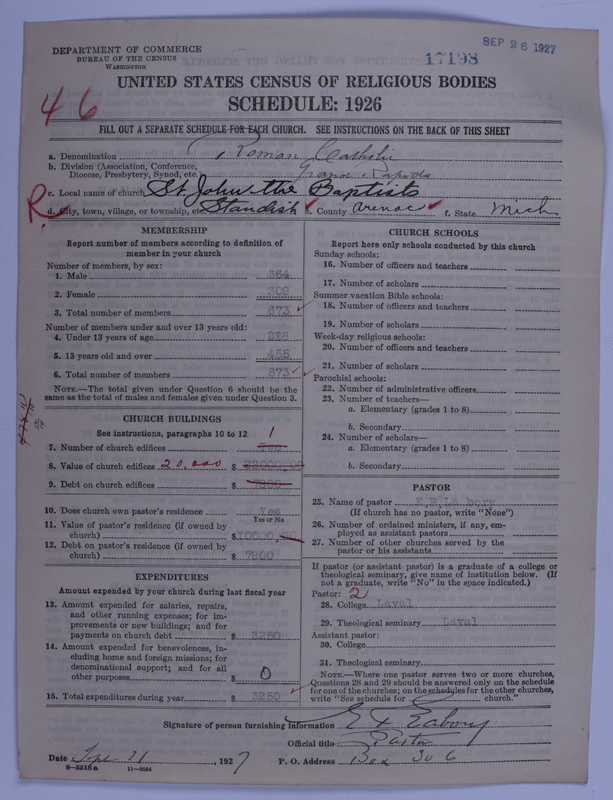 DEPARTMENT OF COMMERCE
BUREAU OF THE CENSUS
WASHINGTON
17198
SEP 26 1927
UNITED STATES CENSUS OF RELIGIOUS BODIES
SCHEDULE: 1926
46
FILL OUT A SEPARATE SCHEDULE FOR EACH CHURCH. SEE INSTRUCTIONS ON THE BACK OF THIS SHEET
a. Denomination Roman Catholic
b. Division (Association, Conference, Diocese, Presbytery, Synod, etc.) Grand Rapids
c. Local name of church St John the Baptists
R
d. City, town, village, or township, etc. Standish e. County Arenac f. State Mich
MEMBERSHIP
Report number of members according to definition of
member in your church
Number of members, by sex:
1. Male 364
2. Female 309
3. Total number of members 673
Number of members under and over 13 years old:
4. Under 13 years of age 218
5. 13 years old and over 455
6. Total number of members 673
NOTE.—The total given under Question 6 should be the
same as the total of males and females given under Question 3.
CHURCH BUILDINGS
See instructions, paragraphs 10 to 12 1
7. Number of church edifices
8. Value of church edifices 20,000 $
9. Debt on church edifices $
10. Does church own pastor's residence Yes
Yes or No
11. Value of pastor's residence (if owned by
church) $10000
12. Debt on pastor's residence (if owned by
church) $ 7800
EXPENDITURES
Amount expended by your church during last fiscal year
13. Amount expended for salaries, repairs,
and other running expenses; for im-
provements or new buildings; and for
payments on church debt $ 3250
14. Amount expended for benevolences, in-
cluding home and foreign missions; for
denominational support; and for all
other purposes $ 0
15. Total expenditures during year $ 3250
CHURCH SCHOOLS
Report here only schools conducted by this church
Sunday schools:
16. Number of officers and teachers
17. Number of scholars
Summer vacation Bible schools:
18. Number of officers and teachers
19. Number of scholars
Week-day religious schools:
20. Number of officers and teachers
21. Number of scholars
Parochial schools:
22. Number of administrative officers
23. Number of teachers—
a. Elementary (grades 1 to 8)
b. Secondary
24. Number of scholars—
a. Elementary (grades 1 to 8)
b. Secondary
PASTOR
25. Name of pastor
(If church has no pastor, write "None")
26. Number of ordained ministers, if any, em-
ployed as assistant pastors
27. Number of other churches served by the
pastor or his assistants
If pastor (or assistant pastor) is a graduate of a college or
theological seminary, give name of institution below. (If
not a graduate, write "No" in the space indicated.)
Pastor: 2
28. College Laval
29. Theological seminary Laval
Assistant pastor:
30. College
31. Theological seminary
NOTE.—Where one pastor serves two or more churches,
Questions 28 and 29 should be answered only on the schedule
for one of the churches; on the schedules for the other churches,
write "See schedule for church."
Signature of person furnishing information
Official title Pastor
Date Sept 21, 1927 P. O. Address Box 306
8-5516a 11-9084